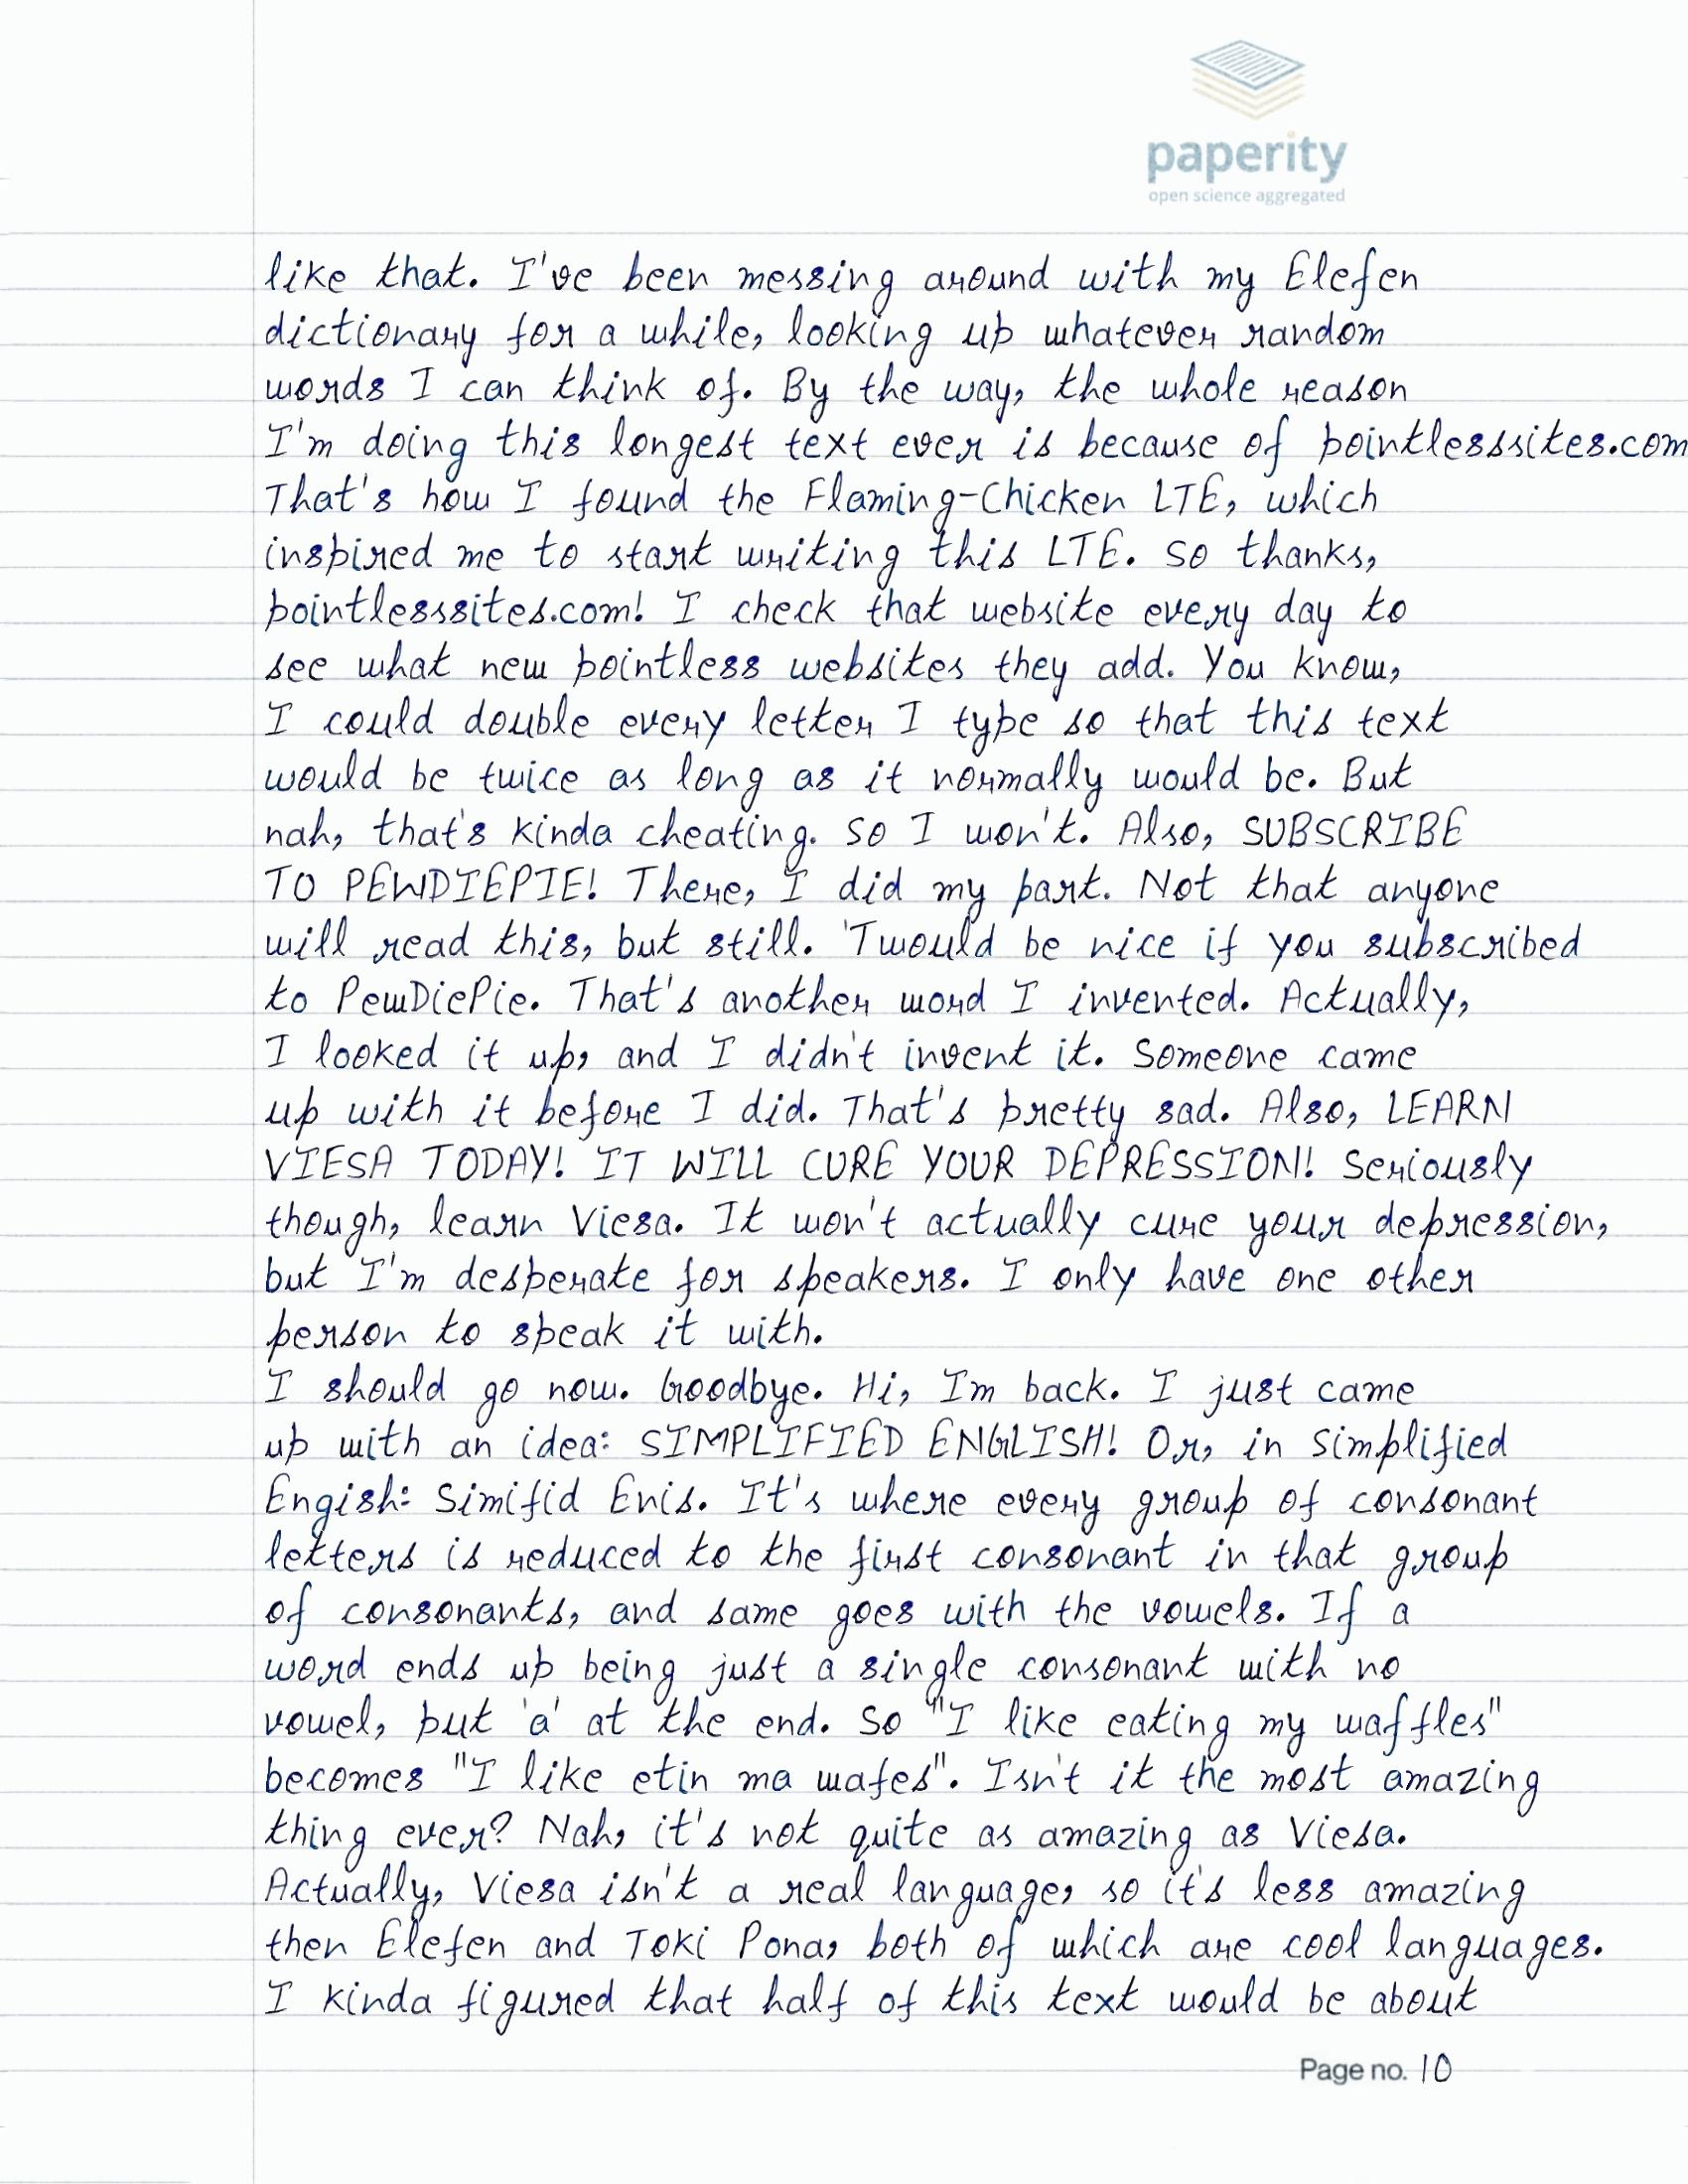 paperity
open science aggregated
like that. I've been messing around with my Elefen
dictionary for a while, looking up whatever random
words I can think of. By the way, the whole reason
I'm doing this longest text ever is because of pointlesssites.com
That's how I found the Flaming-Chicken LTE, which
inspired me to start writing this LTE. So thanks,
pointlesssites.com! I check that website every day to
see what new pointless websites they add. You know,
I could double every letter I type so that this text
would be twice as long as it normally would be. But
nah, that's kinda cheating. So I won't. Also, SUBSCRIBE
TO PEWDIEPIE! There, I did my part. Not that anyone
will read this, but still. 'Twould be nice if you subscribed
to PewDiePie. That's another word I invented. Actually,
I looked it up, and I didn't invent it. Someone came
up with it before I did. That's pretty sad. Also, LEARN
VIESA TODAY! IT WILL CURE YOUR DEPRESSION! Seriously
though, learn Viesa. It won't actually cure your depression,
but I'm desperate for speakers. I only have one other
person to speak it with.
I should go now. Goodbye. Hi, I'm back. I just came
up with an idea: SIMPLIFIED ENGLISH! Or, in Simplified
Engish: Simifid Enis. It's where every group of consonant
letters is reduced to the first consonant in that group
of consonants, and same goes with the vowels. If a
word ends up being just a single consonant with no
vowel, put 'a' at the end. So "I like eating my waffles"
becomes "I like etin ma wafes". Isn't it the most amazing
thing ever? Nah, it's not quite as amazing as Viesa.
Actually, Viesa isn't a real language, so it's less amazing
then Elefen and Toki Pona, both of which are cool languages.
I kinda figured that half of this text would be about
Page no. 10